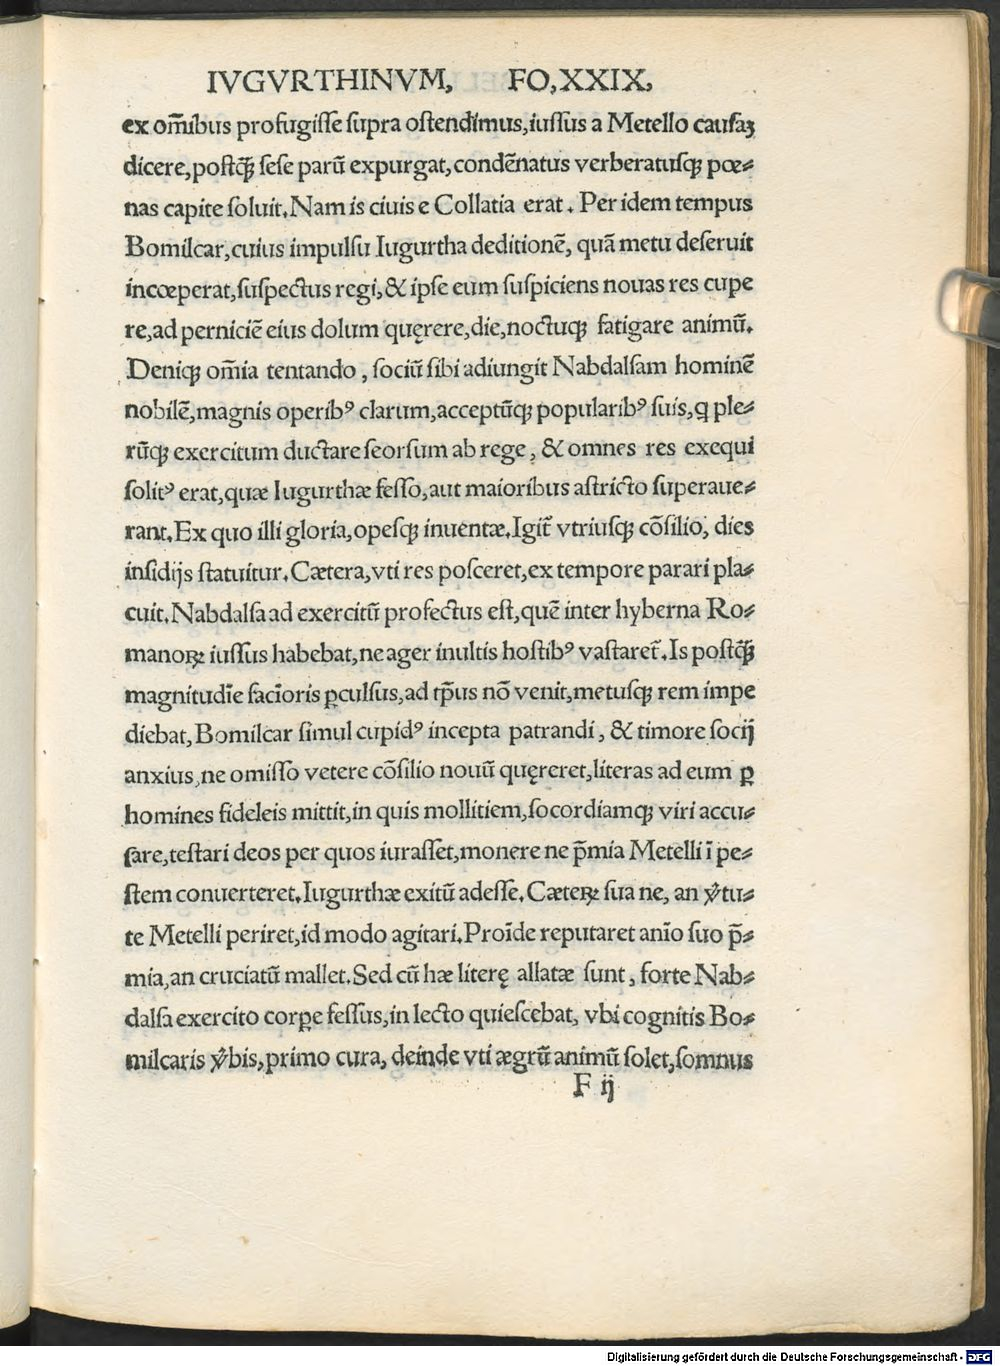 IVGVRTHINVM, FO,XXIX,
ex om̃ibus profugiſſe ſupra oſtendimus,iuſſus a Metello cauſaꝫ
dicere,poſtq̃ ſeſe parũ expurgat,condẽnatus verberatuſqꝫ pœ⸗
nas capite ſoluit.Nam is ciuis e Collatia erat. Per idem tempus
Bomilcar,cuius impulſu Iugurtha deditionẽ, quã metu deſeruit
incœperat,ſuſpectus regi,& ipſe eum ſuſpiciens nouas res cupe
re,ad perniciẽ eius dolum quęrere,die,noctuqꝫ fatigare animũ.
Deniqꝫ om̃ia tentando, ſociũ ſibi adiungit Nabdalſam hominẽ
nobilẽ,magnis operibꝰ clarum,acceptũqꝫ popularibꝰ ſuis,ꝙ ple⸗
rũqꝫ exercitum ductare ſeorſum ab rege, & omnes res exequi
ſolitꝰ erat,quæ Iugurthæ feſſo,aut maioribus aſtricto ſuperaue⸗
rant.Ex quo illi gloria,opeſqꝫ inuentæ.Igit̃ vtriuſqꝫ cõſilio, dies
inſidijs ſtatuitur.Cætera,vti res poſceret,ex tempore parari pla⸗
cuit.Nabdalſa ad exercitũ profectus eſt,quẽ inter hyberna Ro⸗
manoꝝ iuſſus habebat,ne ager inultis hoſtibꝰ vaſtaret̃.Is poſtq̃ꝫ
magnitudĩe facĩoris ꝑculſus,ad tp̃us nõ venit,metuſqꝫ rem impe
diebat,Bomilcar ſimul cupidꝰ incepta patrandi, & timore ſocij
anxius,ne omiſſo vetere cõſilio nouũ quęreret,literas ad eum ꝑ
homines fideleis mittit,in quis mollitiem,ſocordiamqꝫ viri accu⸗
ſare,teſtari deos per quos iuraſſet,monere ne p̃mia Metelli ĩ pe⸗
ſtem conuerteret.Iugurthæ exitũ adeſſe.Cæteꝝ ſua ne, an v̾tu⸗
te Metelli periret,id modo agitari.Proĩde reputaret anĩo ſuo p̃⸗
mia,an cruciatũ mallet.Sed cũ hæ literę allatæ ſunt, forte Nab⸗
dalſa exercito corꝑe feſſus,in lecto quieſcebat, vbi cognitis Bo⸗
milcaris v̾bis,primo cura, deinde vti ægrũ animũ ſolet,ſomnus
F ij
Digitalisierung gefördert durch die Deutsche Forschungsgemeinschaft - DFG